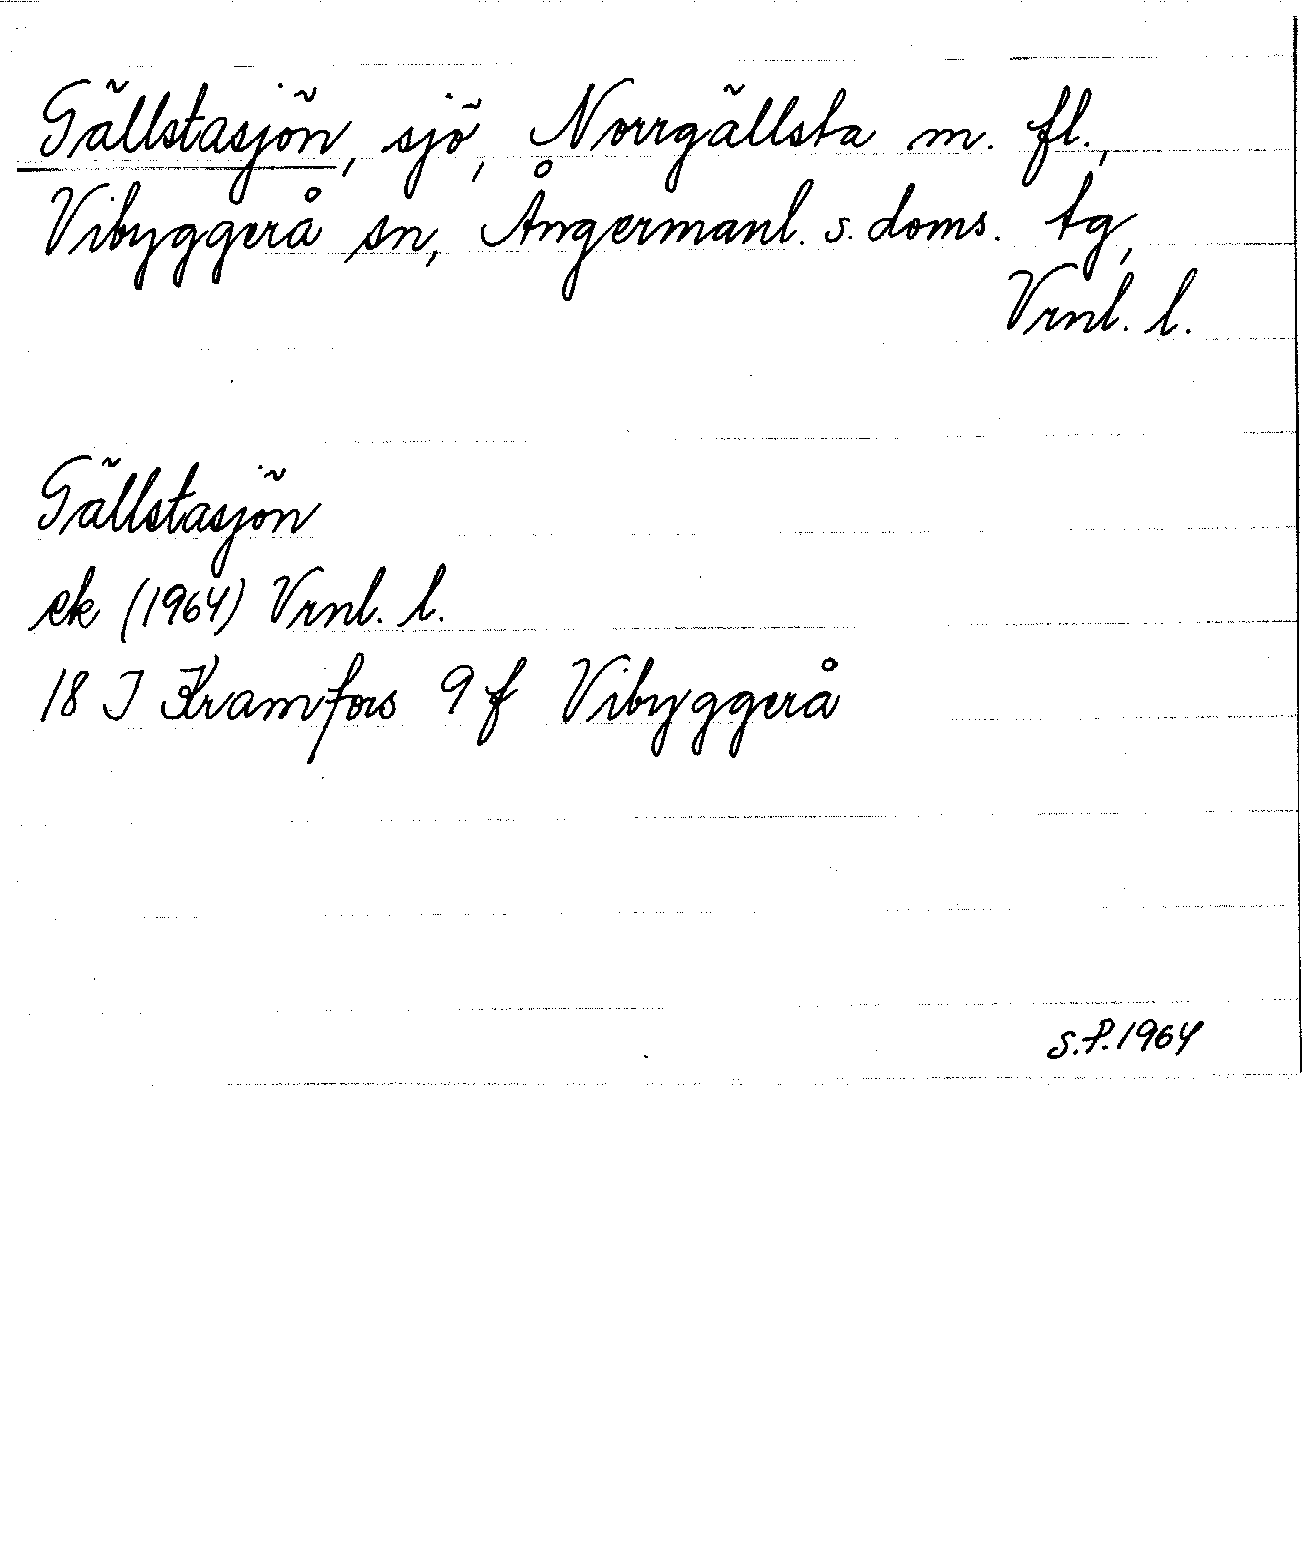 Gällstasjön, sjö, Norrgällsta m. fl.,
Vibyggerå sn, Ångermanl. s. doms. tg,
Vrnl. l.
Gällstasjön
ek (1964) Vrnl. l.
18 J Kramfors 9 f Vibyggerå
S.P. 1964